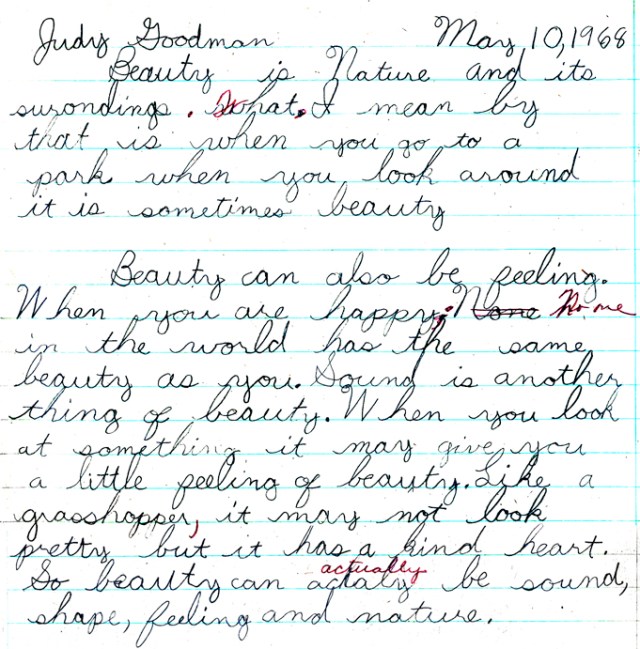 Judy Goodman May 10, 1968
Beauty is Nature and its
surondings. What I mean by
that is when you go to a
park when you look around
it is sometimes beauty
Beauty can also be feeling.
When you are happy. None no one
in the world has the same
beauty as you. Sound is another
thing of beauty. When you look
at something it may give you
a little feeling of beauty. Like a
grasshopper, it may not look
pretty but it has a kind heart.
actually
So beauty can actaly be sound,
shape, feeling and nature.